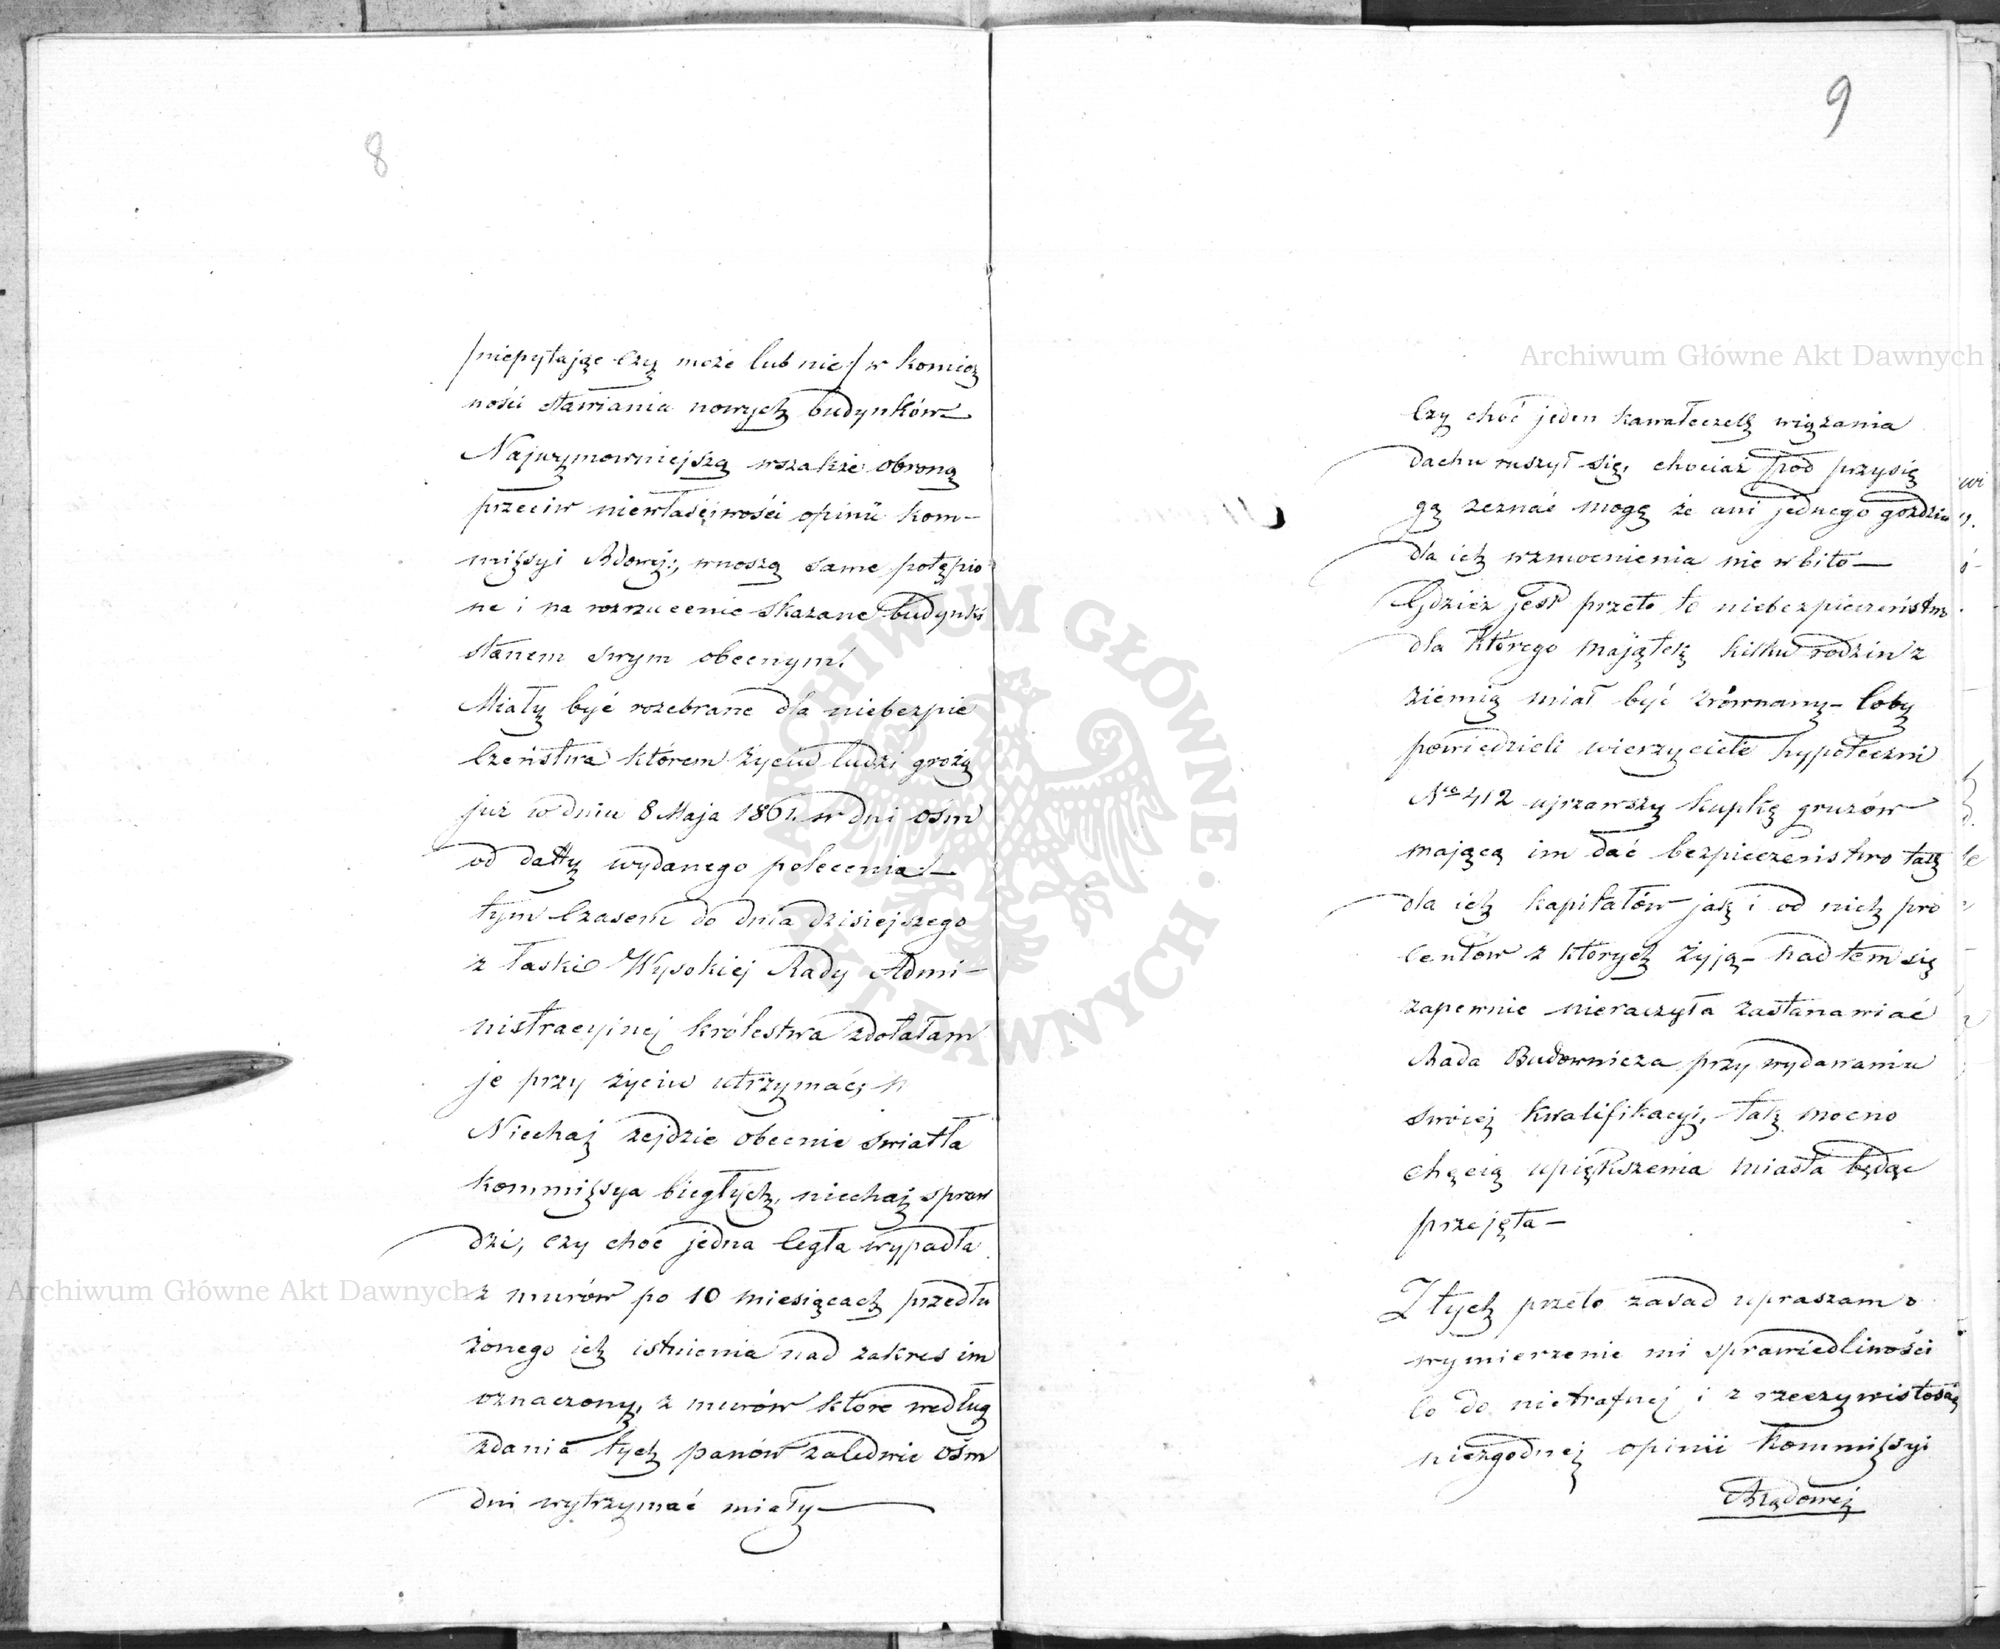 8
/niepytając czy może lub nie/ w koniecz
ności stawiania nowych budynków
Najwymowniejszą wszakże obroną
przeciw niewłaściwości opinii kom-
missyi Rdowej:, wnoszą same potępio
ne i na rozrzucenie skazane budynki
stanem swym obecnym!
Miały być rozebrane dla niebezpie
czeństwa którem życiu ludzi grożą
już w dniu 8 Maja 1861 w dni ośm
od datty wydanego polecenia! —
tym czasem do dnia dzisiejszego
z łaski Wysokiej Rady Admi-
nistracyjnej królestwa zdołałam
je przy życiu utrzymać;
Niechaj zejdzie obecnie światła
kommissya biegłych, niechaj spraw
dzi, czy choć jedna cegła wypadła
z murów po 10 miesiącach przedłu
żonego ich istnienia nad zakres im
oznaczony, z murów które według
zdania tych panów zaledwie ośm
dni wytrzymać miały —
9
Czy choć jeden kawałeczek wiązania
dachu ruszył się, chociaż pod przysię
gą zeznać mogę że ani jednego goździa
dla ich wzmocnienia nie wbito —
Gdzież jest przeto to niebezpieczeństwo
dla którego majątek kilku rodzin z
ziemią miał być zrównany — coby
powiedzieli wierzyciele hypoteczni
Nro 412 ujrzawszy kupkę gruzów
mającą im dać bezpieczeństwo tak
dla ich kapitałów jak i od nich pro
centów z których żyją — nad tem się
zapewnie nieraczyła zastanawiać
Rada Budownicza przy wydawaniu
swéiej kwalifikacyi, tak mocno
chęcią upiększenia miasta będąc
przejęta —
Z tych przeto zasad upraszam o
wymierzenie mi sprawiedliwości
co do nietrafnej i z rzeczywistością
niezgodnej opinii Kommissyi
Rządowej
Archiwum Główne Akt Dawnych
Archiwum Główne Akt Dawnych
ARCHIWUM GŁÓWNE AKT DAWNYCH